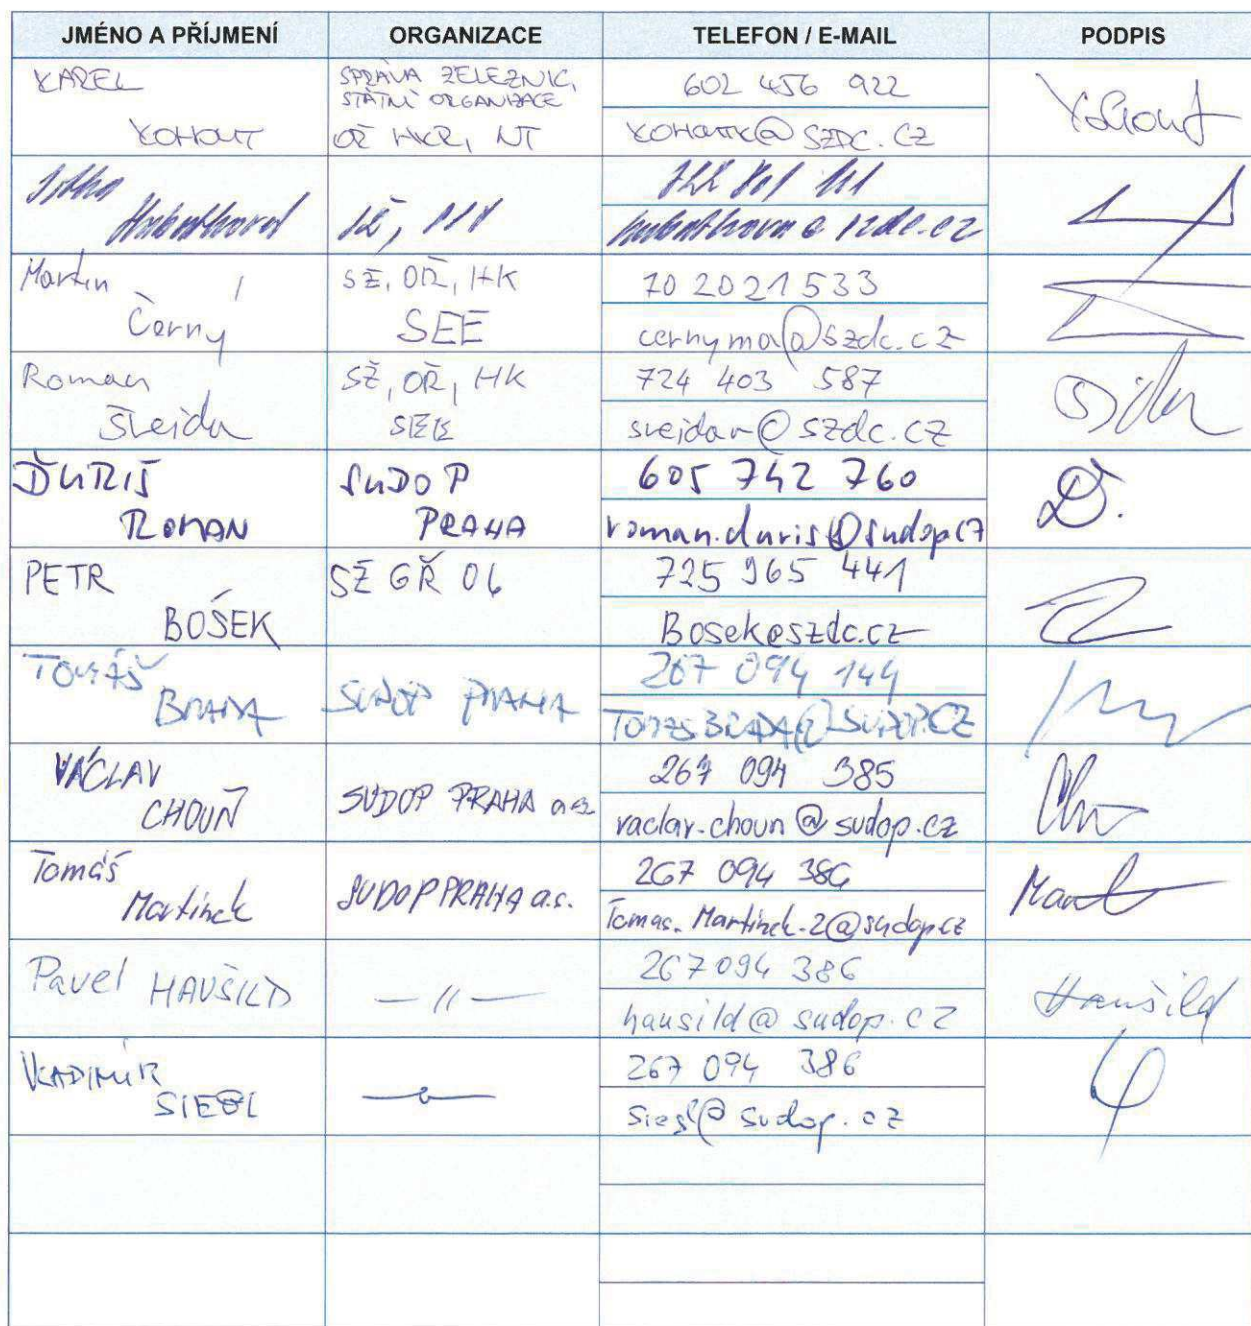 JMÉNO A PŘÍJMENÍ ORGANIZACE TELEFON / E-MAIL PODPIS
KAREL KOHOUT
SPRÁVA ŽELEZNIC,
STÁTNÍ ORGANIZACE
OŘ HKR, NT
602 456 922
KOHOUTK@SZDC.CZ
Kohout
Martin
Černý
SŽ, OŘ, HK
SEE
702021533
cernyma@szdc.cz
Roman
Švejda
SŽ, OŘ, HK
SEE
724 403 587
svejdar@szdc.cz
ĎURIŠ
ROMAN
SUDOP
PRAHA
605 742 760
roman.duris@sudop.cz
Ď.
PETR
BOŠEK
SŽ GŘ 06
725 965 441
Bosek@szdc.cz
TOMÁŠ
BRADA
SUDOP PRAHA
267 094 144
TOMAS.BRADA@SUDOP.CZ
VÁCLAV
CHOUŇ
SUDOP PRAHA a.s.
267 094 385
vaclav.choun@sudop.cz
Tomáš
Martinek
SUDOP PRAHA a.s.
267 094 386
Tomas.Martinek.2@sudop.cz
Pavel HAUŠILD
— 〃 —
267094 386
hausild@sudop.cz
Haušild
VLADIMÍR
SIEGL
267 094 386
siegl@sudop.cz